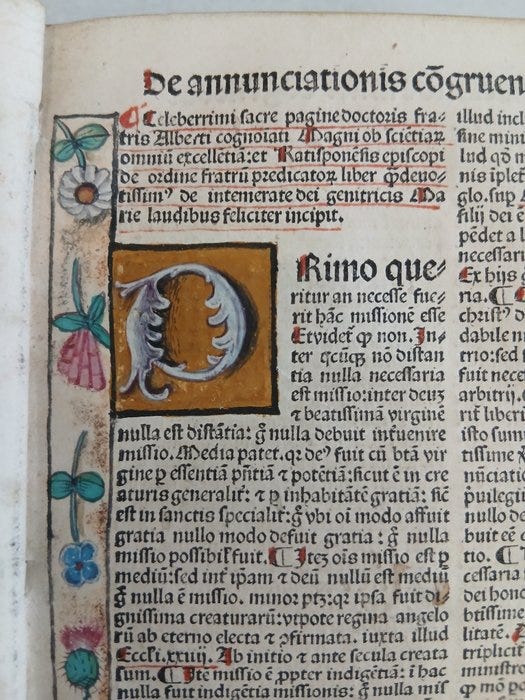 De annunciationis cōgruen
Celeberrimi sacre pagine doctoris fra⸗
tris Alberti cognoīati Magni ob sciētiaꝝ
omniū excellētiā: et Ratisponēsis episcopi
de ordine fratrū predicatoꝝ liber q̄deuo⸗
tissimꝰ de intemerate dei genitricis Ma
rie laudibus feliciter incipit.
PRimo que⸗
ritur an necesse fue⸗
rit hāc missionē esse
Et videt̄ ꝙ non. In⸗
ter qcūqꝫ nō distan
tia nulla necessaria
est missio: inter deuꝫ
⁊ beatissimā virginē
nulla est distātia: ḡ nulla debuit inṫuenire
missio. Media patet. qꝛ deꝰ fuit cū btā vir
gine ꝑ essentiā pn̄tiā ⁊ potētiā: sicut ē in cre
aturis generaliṫ: ⁊ ꝑ inhabitātē gratiā: sic̄
est in sanctis specialiṫ: ḡ vbi oī modo affuit
gratia nullo modo defuit gratia: ḡ nulla
missio possibil̓ fuit. ¶ Iteꝫ oīs missio est ꝑ
mediū: sed inṫ ip̄am ⁊ deū nullū est mediū
ḡ nulla ē missio. minor ptꝫ: qꝛ ipsa fuit di⸗
gnissima creaturarū: vtpote regina angelo
rū ab eterno electa ⁊ ꝯfirmata. iuxta illud
Eccl̓i.xxiiij. Ab initio ⁊ ante secula creata
sum. ¶ Itē missio ē ꝓpter indigētiā: ī hac
nulla fuit indigētia missionis: ḡ nulla mis
illud incl
sine mini
lud qd̄ m
nis īplet̄
glo. sup
filij dei e
pēdet a l
necessari
Ex hijs
ria. ¶
christꝰ d
dabile m
trio: sed
fuit nece
arbitrij.
rit liberi
isto sum
tissime
nūciatio
p̄uilegi
nullo de
buit eē
tio. ¶
cessaria
dei hono
btissime
litatē.
triplicit
ministro
ꝙ mō po